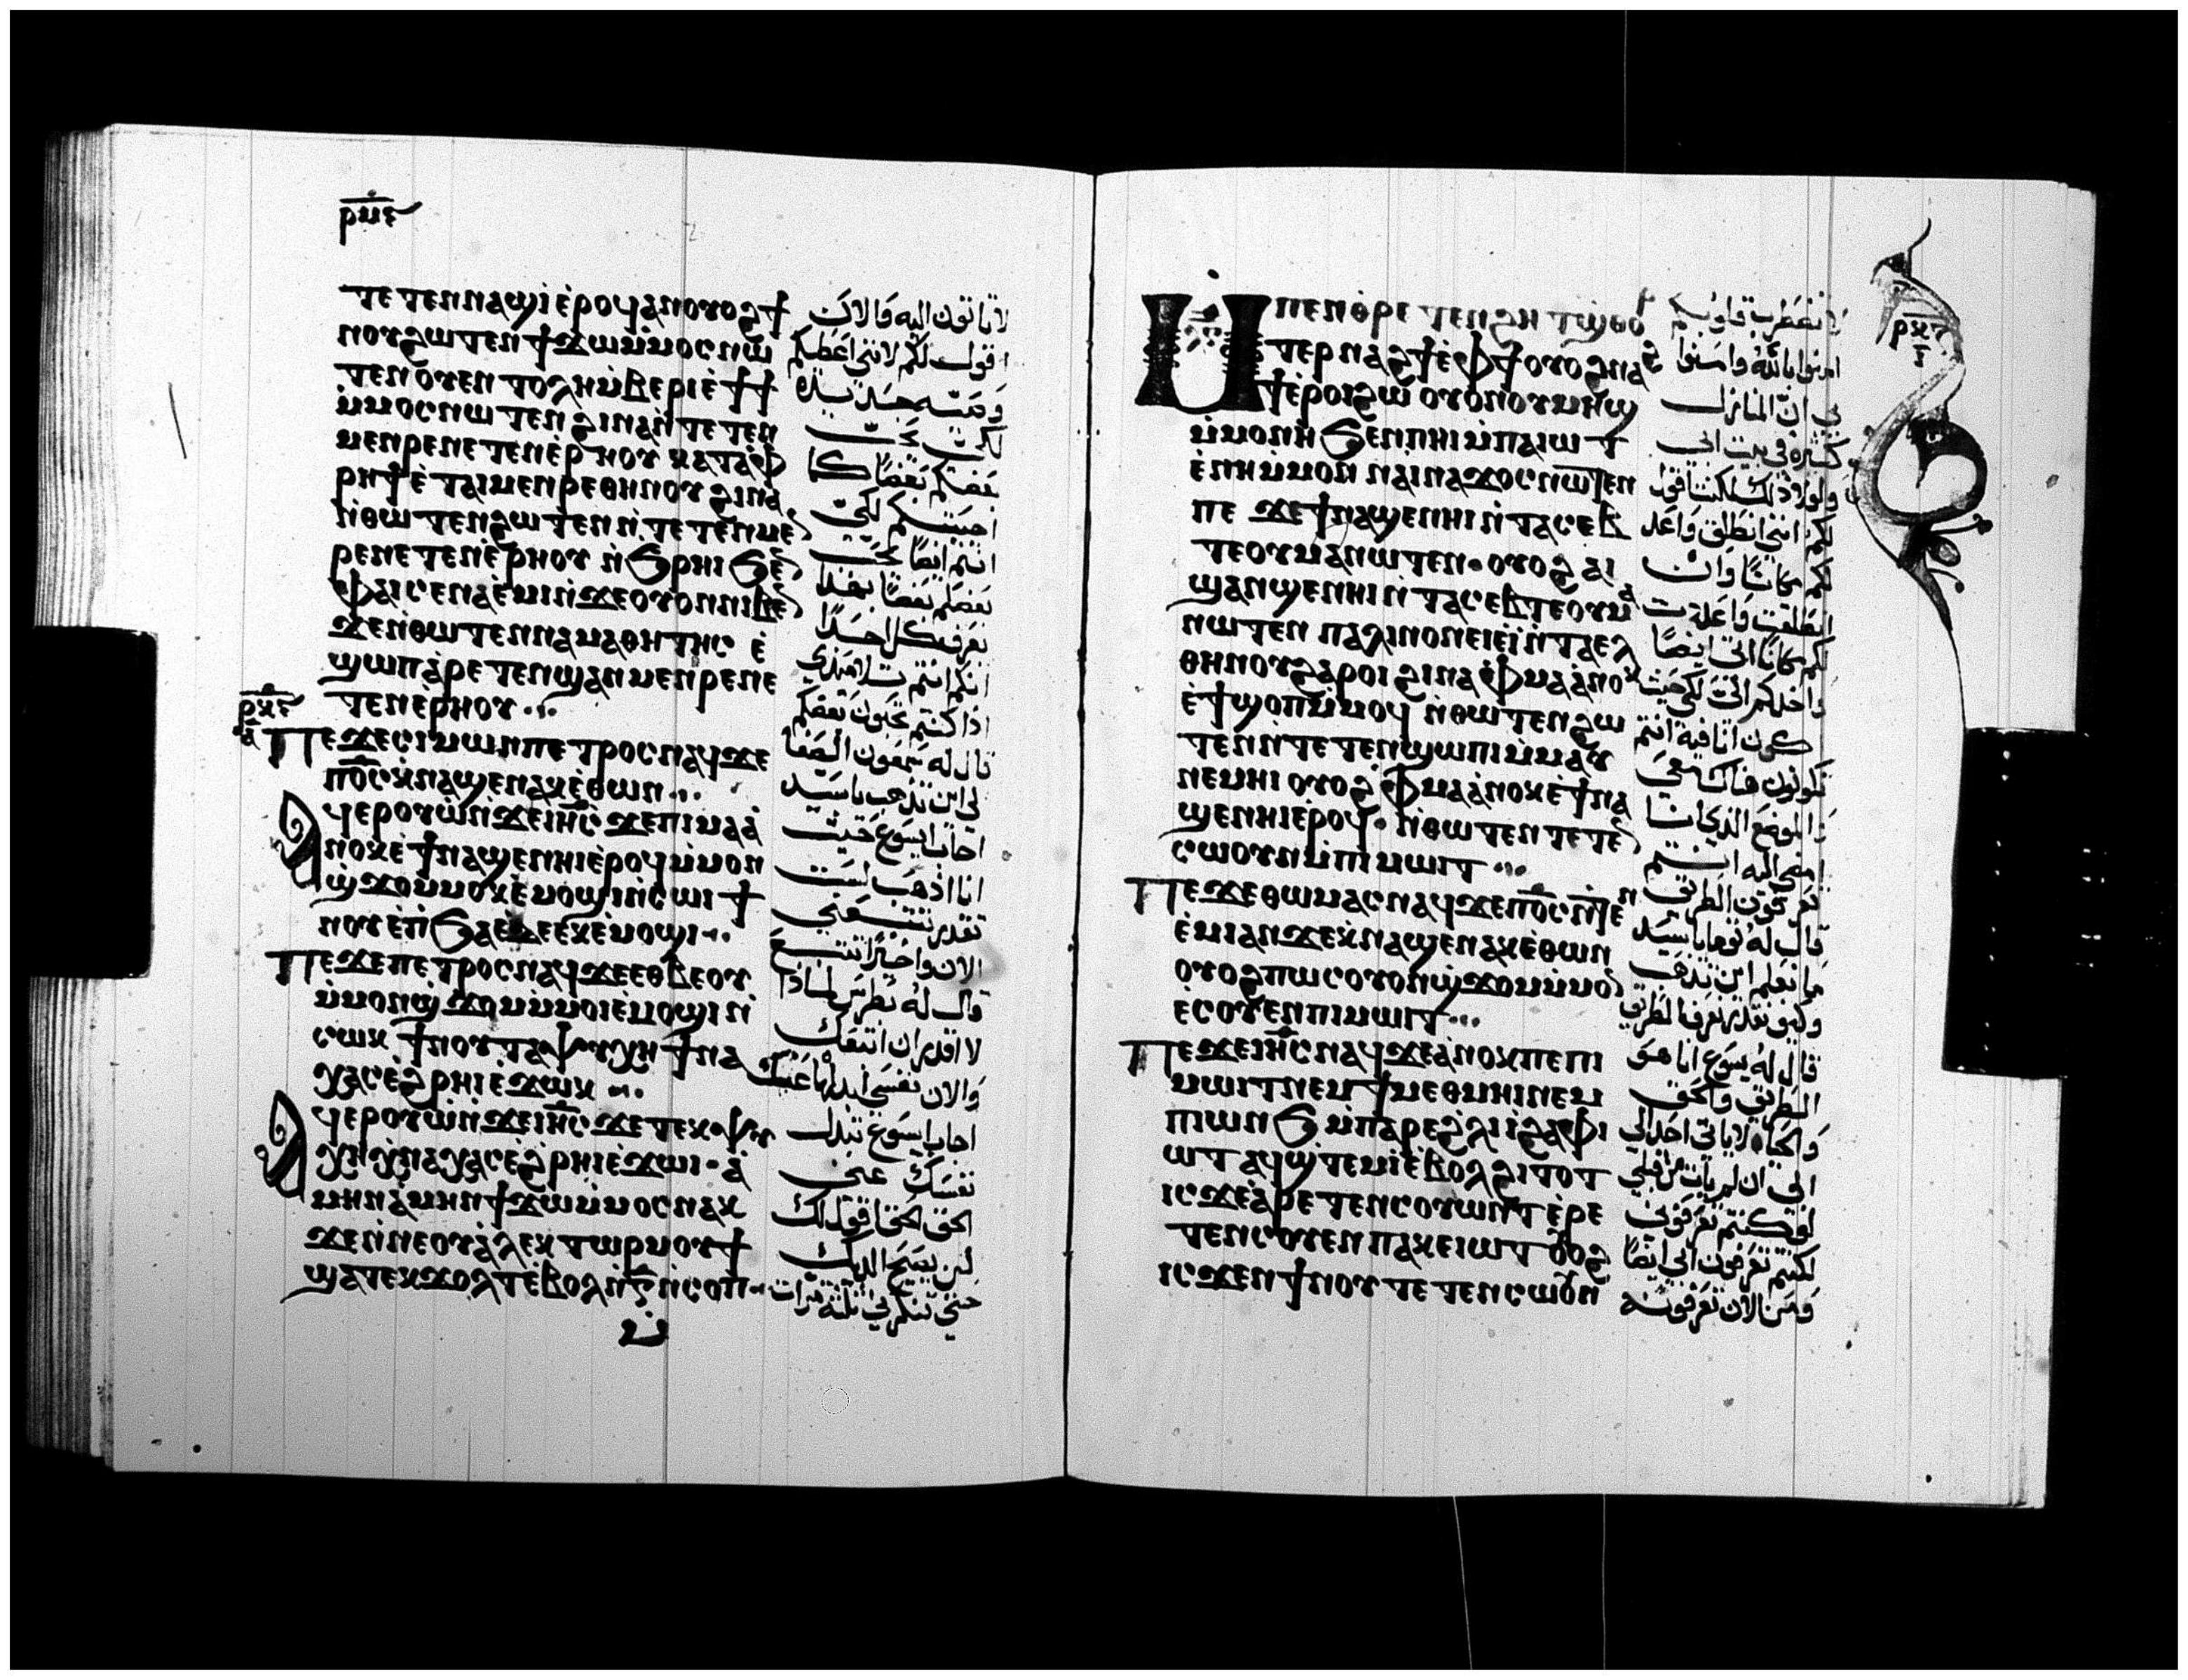 ⲧⲉⲧⲉⲛⲛⲁϣⲓ̀ ⲉ̀ⲣⲟϥ ⲁⲛ ⲟⲩⲟϩ ϯ
ⲛⲟⲩ ϩⲱⲧⲉⲛ ϯϫⲱ ⲙ̀ⲙⲟⲥ ⲛⲱ
ⲧⲉⲛ ⲟⲩⲉⲛⲧⲟⲗⲏ ⲙ̀ⲃⲉⲣⲓ ⲉ̀ϯϯ
ⲙ̀ⲙⲟⲥ ⲛⲱⲧⲉⲛ ϩⲓⲛⲁ ⲛ̀ⲧⲉⲧⲉⲛ
ⲙⲉⲛⲣⲉ ⲛⲉⲧⲉⲛⲉ̀ⲣⲏⲟⲩ ⲕⲁⲧⲁⲫ
ⲣⲏϯ ⲉ̀ⲧⲁⲓⲙⲉⲛⲣⲉ ⲑⲏⲛⲟⲩ ϩⲓⲛⲁ
ⲛ̀ⲑⲱⲧⲉⲛ ϩⲱⲧⲉⲛ ⲛ̀ⲧⲉⲧⲉⲛⲙⲉ
ⲣⲉ ⲛⲉⲧⲉⲛⲉ̀ⲣⲏⲟⲩ ⲛ̀ϧⲣⲏⲓ ϧⲉ
ⲫⲁⲓ ⲥⲉⲛⲁⲉ̀ⲙⲓ ⲛ̀ϫⲉ ⲟⲩⲟⲛ ⲛⲓⲃⲉ
ϫⲉ ⲛ̀ⲑⲱⲧⲉⲛ ⲛⲁⲙⲁⲑⲏⲧⲏⲥ ⲉ̀
ϣⲱⲡ ⲁ̀ⲣⲉⲧⲉⲛϣⲁⲛⲙⲉⲛⲣⲉ ⲛⲉ
ⲧⲉⲛⲉ̀ⲣⲏⲟⲩ
ⲡⲉϫⲉ ⲥⲓⲙⲱⲛ ⲡⲉⲧⲣⲟⲥ ⲛⲁϥ ϫⲉ
ⲡⲟ̅ⲥ̅ ⲭ̀ⲛⲁϣⲉⲛⲁⲕ ⲉ̀ⲑⲱⲛ
ⲁϥⲉⲣⲟⲩⲱ̀ ⲛ̀ϫⲉ ⲓⲏ̅ⲥ̅ ϫⲉ ⲡⲓⲙⲁ ⲁ̀
ⲛⲟⲕ ⲉ̀ϯⲛⲁϣⲉ ⲛⲏⲓ ⲉ̀ⲣⲟϥ ⲙ̀ⲙⲟⲛ
ϣ̀ϫⲟⲙ ⲙ̀ⲙⲟⲕ ⲉ̀ⲙⲟϣⲓ ⲛ̀ⲥⲱⲓ ϯ
ⲛⲟⲩ ⲉ̀ⲡ̀ϧⲁⲉ̀ ⲇⲉ ⲉⲕⲉ̀ⲙⲟϣⲓ
ⲡⲉϫⲉ ⲡⲉⲧⲣⲟⲥ ⲛⲁϥ ϫⲉ ⲉⲑⲃⲉⲟⲩ
ⲙ̀ⲙⲟⲛ ϣ̀ϫⲟⲙ ⲙ̀ⲙⲟⲓ ⲉ̀ⲙⲟϣⲓ ⲛ̀
ⲥⲱⲕ ϯⲛⲟⲩ ⲧⲁⲯⲩⲭⲏ ϯⲛⲁ
ⲭⲁⲥ ⲉ̀ϩⲣⲏⲓ ⲉ̀ϫⲱⲕ
ⲁϥⲉⲣⲟⲩⲱ̀ ⲛ̀ϫⲉ ⲓⲏ̅ⲥ̅ ϫⲉ ⲧⲉⲕⲯⲩ
ⲭⲏ ⲭ̀ⲛⲁⲭⲁⲥ ⲉ̀ϩⲣⲏⲓ ⲉ̀ϫⲱⲓ ⲁ̀
ⲙⲏⲛ ⲁ̀ⲙⲏⲛ ϯϫⲱ ⲙ̀ⲙⲟⲥ ⲛⲁⲕ
ϫⲉ ⲛ̀ⲛⲉ ⲟⲩⲁ̀ⲗⲉⲕⲧⲱⲣ ⲙⲟⲩϯ
ϣⲁⲧⲉⲕϫⲟⲗⲧ ⲉ̀ⲃⲟⲗ ⲛ̀ⲅ̅ ⲛ̀ⲥⲟⲡ
لا تاتون اليه فالان
اقول لكم لانني اعطيكم
وصيّه جديده
لكي يحب
بعضكم بعضًا كما
احببتكم لكي
انتم ايضًا يحب
بعضكم بعضًا بهذا
يعرف كل احد
انكم انتم تلاميذي
اذا كنتم تحبون بعضكم
قال له سمعون الصفا
الى اين تذهب يا سيد
اجاب ايسوع حيث
انا اذهب لست
تقدر تتبعني
الان واخيرًا تتبع
قال له بطرس لماذا
لا اقدر ان اتبعك
والان نفسي ابدلها عنك
اجاب ايسوع تبدل
نفسك عني
الحق الحق اقول لك
لن يصيح الديك
حتي تنكرني ثلثه مرات
ⲙⲡⲉⲛⲑⲣⲉ ⲡⲉⲧⲉⲛϩⲏⲧ ϣⲑⲟⲣ
ⲧⲉⲣ ⲛⲁϩϯ ⲉ̀ⲫϯ ⲟⲩⲟϩ ⲛⲁϩ
ϯ ⲉ̀ⲣⲟⲓ ϩⲱ ⲟⲩⲟⲛ ⲟⲩⲙⲏϣ
ⲙ̀ⲙⲟⲛⲏ ϧⲉⲛ ⲡⲏⲓ ⲙ̀ⲡⲁⲓⲱⲧ
ⲉ̀ⲛⲏ ⲙ̀ⲙⲟⲛ ⲛⲁⲓⲛⲁϫⲟⲥ ⲛⲱⲧⲉⲛ
ⲡⲉ ϫⲉ ϯⲛⲁϣⲉ ⲛⲏⲓ ⲛ̀ⲧⲁⲥⲉⲃ
ⲧⲉ ⲟⲩⲙⲁ ⲛⲱⲧⲉⲛ ⲟⲩⲟϩ ⲁⲓ
ϣⲁⲛϣⲉ ⲛⲏⲓ ⲛ̀ⲧⲁⲥⲉⲃⲧⲉ ⲟⲩⲙⲁ
ⲛⲱⲧⲉⲛ ⲡⲁⲗⲓⲛ ⲟⲛ ⲉⲓⲉ̀ⲓ̀ ⲛ̀ⲧⲁⲉⲗ
ⲑⲏⲛⲟⲩ ϩⲁⲣⲟⲓ ϩⲓⲛⲁ ⲫⲙⲁ ⲁ̀ⲛⲟⲕ
ⲉ̀ϯϣⲟⲡ ⲙ̀ⲙⲟϥ ⲛ̀ⲑⲱⲧⲉⲛ ϩⲱ
ⲧⲉⲛ ⲛ̀ⲧⲉⲧⲉⲛϣⲱⲡⲓ ⲙ̀ⲙⲁⲩ
ⲛⲉⲙⲏⲓ ⲟⲩⲟϩ ⲫⲙⲁ ⲁ̀ⲛⲟⲕ ⲉ̀ϯⲛⲁ
ϣⲉ ⲛⲏⲓ ⲉ̀ⲣⲟϥ ⲛ̀ⲑⲱⲧⲉⲛ ⲧⲉⲧⲉ
ⲥⲱⲟⲩⲛ ⲙ̀ⲡⲓⲙⲱⲓⲧ
ⲡⲉϫⲉ ⲑⲱⲙⲁⲥ ⲛⲁϥ ϫⲉ ⲡⲟ̅ⲥ̅ ⲛ̀ⲧⲉⲛ
ⲉ̀ⲙⲓ ⲁⲛ ϫⲉ ⲭ̀ⲛⲁϣⲉⲛⲁⲕ ⲉ̀ⲑⲱⲛ
ⲟⲩⲟϩ ⲡⲱⲥ ⲟⲩⲟⲛ ϣ̀ϫⲟⲙ ⲙ̀ⲙⲟ
ⲉ̀ⲥⲟⲩⲉⲛ ⲡⲓⲙⲱⲓⲧ
ⲡⲉϫⲉ ⲓⲏ̅ⲥ̅ ⲛⲁϥ ϫⲉ ⲁ̀ⲛⲟⲕ ⲡⲉ ⲡⲓ
ⲙⲱⲓⲧ ⲛⲉⲙ ϯⲙⲉⲑⲙⲏⲓ ⲛⲉⲙ
ⲡⲓⲱⲛϧ ⲙ̀ⲡⲁⲣⲉ ϩ̀ⲗⲓ ⲓ̀ ϩⲁ ⲫⲓ
ⲱⲧ ⲁϥϣ̀ⲧⲉⲙⲓ̀ ⲉ̀ⲃⲟⲗ ϩⲓⲧⲟⲧ
ⲓⲥϫⲉ ⲁ̀ⲣⲉⲧⲉⲛⲥⲟⲩⲱⲛⲧ ⲉ̀ⲣⲉ
ⲧⲉⲛⲥⲟⲩⲉⲛ ⲡⲁⲕⲉⲓⲱⲧ ⲟⲩⲟϩ
ⲓⲥϫⲉⲛ ϯⲛⲟⲩ ⲧⲉⲧⲉⲛⲥⲱⲟⲩⲛ
لا تضطرب قلوبكم
امنوا بالله وامنوا
بي ان المنازل
كثيره في بيت ابي
ولولا ذلك لكنت اقول
لكم انني انطلق واعد
لكم مكانًا وان
انطلقت واعددت
لكم مكانًا اتي ايضًا
واخذكم اليّ لكي حيث
اكون انا فيه انتم
تكونون هناك معي
والموضع الذي انا
امضي اليه انتم
تعرفون الطريق
قال له توما يا سيد
ما نعلم اين تذهب
وكيف نقدر نعرف الطريق
قال له يسوع انا هو
الطريق والحق
والحياه لا ياتي احد الى
ابي ان لم يات من قبلي
لو كنتم تعرفوني
لكنتم تعرفون ابي ايضًا
ومن الان تعرفونه